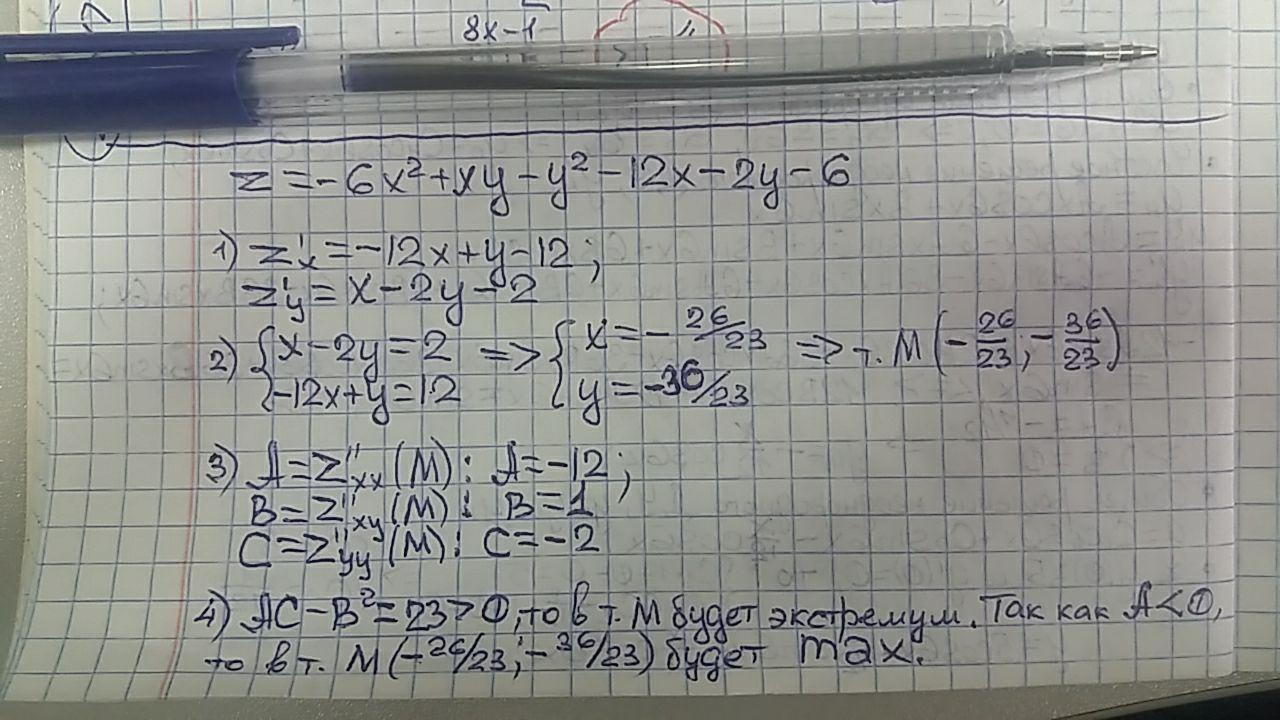 8x-1
z=-6x²+xy-y²-12x-2y-6
1) z'x=-12x+y-12;
z'y=x-2y-2
2) {x-2y=2 => {x=-26/23 => т. M(-26/23;-36/23)
{-12x+y=12 {y=-36/23
3) A=z''xx(M): A=-12;
B=z''xy(M): B=1
C=z''yy(M): C=-2
4) AC-B²=23>0, то в т. M будет экстремум. Так как A<0,
то в т. M(-26/23;-36/23) будет max.